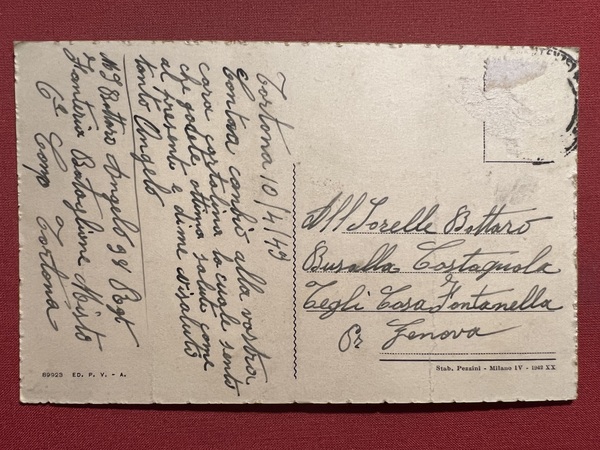 Tortona 10/4/43
Contra cambio alla vostra
cara cartolina la quale sento
che godete ottima salute come
al presente è di me vi saluto
tanto Angelo
Bottaro Angelo 98 Regt
Fanteria Battaglione Misto
6ª Comp Tortona
All Sorelle Bottaro
Busalla Costagnola
Tegli Casa Fontanella
Pr Genova
89923 ED. P. V. - A.
Stab. Pezzini - Milano IV - 1942 XX